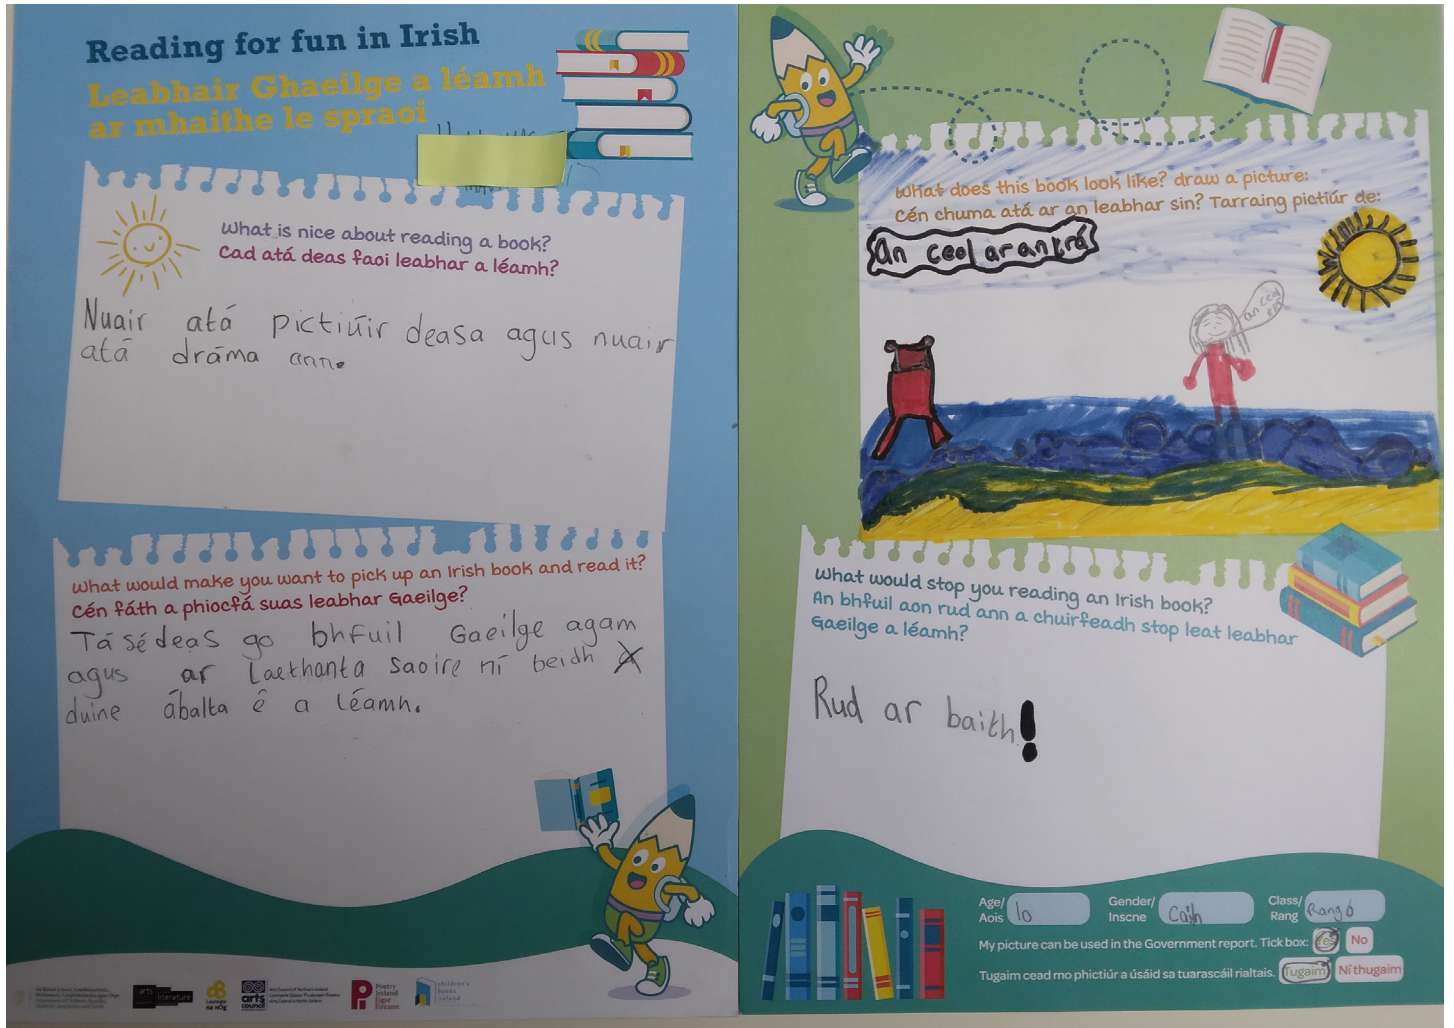 Reading for fun in Irish
Leabhair Ghaeilge a léamh
ar mhaithe le spraoi
What is nice about reading a book?
Cad atá deas faoi leabhar a léamh?
Nuair atá pictiúir deasa agus nuair
atá dráma ann.
What would make you want to pick up an Irish book and read it?
Cén fáth a phiocfá suas leabhar Gaeilge?
Tá sé deas go bhfuil Gaeilge agam
agus ar laethanta saoire ní beidh
duine ábalta é a léamh.
arts
literature
Laureate
na nÓg
arts
council
Poetry
Ireland
Éigse
Éireann
children's
books
ireland
What does this book look like? draw a picture:
Cén chuma atá ar an leabhar sin? Tarraing pictiúr de:
An ceol ar an trá
an ceol
What would stop you reading an Irish book?
An bhfuil aon rud ann a chuirfeadh stop leat leabhar
Gaeilge a léamh?
Rud ar baith!
Age/
Aois 10
Gender/
Inscne
Class/
Rang Rang
My picture can be used in the Government report. Tick box: Yes No
Tugaim cead mo phictiúr a úsáid sa tuarascáil rialtais. Tugaim Ní thugaim